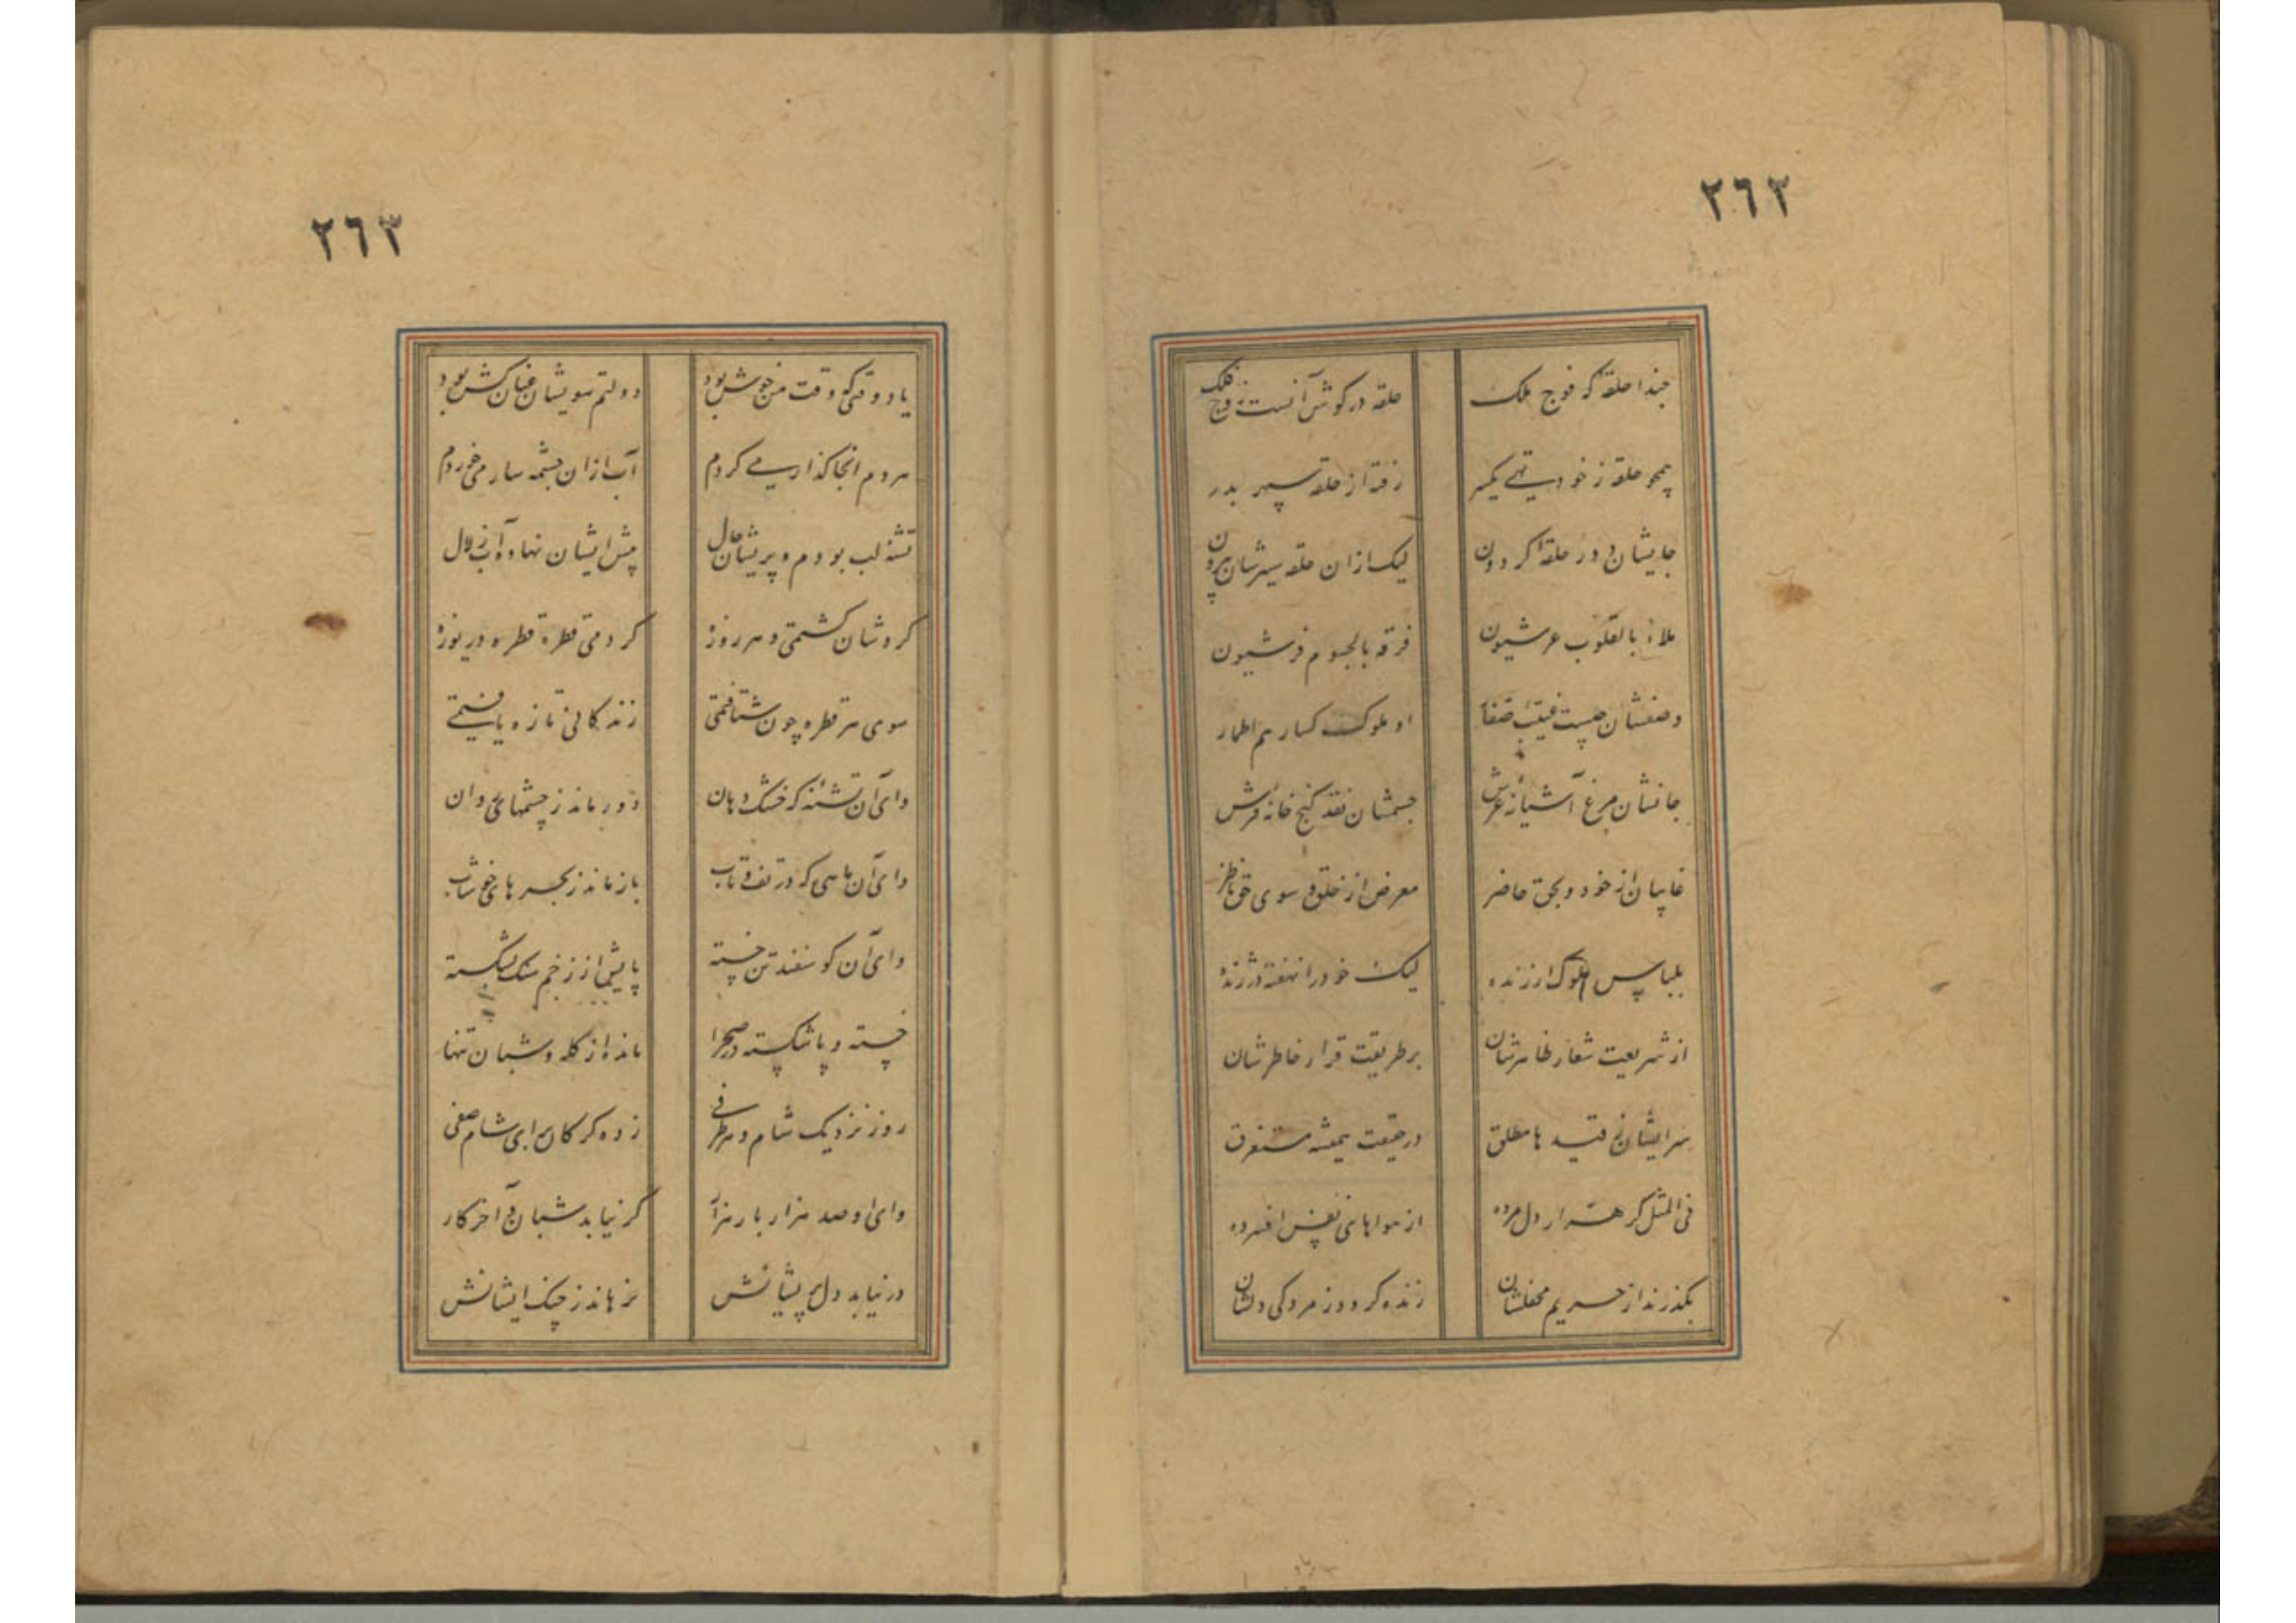 ٢٦٢
حبذا حلقهٔ که فوج ملک
حلقه در گوش آنست ز فوج فلک
همچو حلقه ز خود تهی یکسر
رفته از حلقه سپهر بدر
جایشان در حلقهٔ گردون
لیک ازان حلقه سیرشان بیرون
ملاءٌ بالقلوب عرشیون
فرقه بالجسوم فرشیون
وصفشان چیست
او ملوک کسارهم اطمار
جانشان مرغ آشیانه عرش
جسمشان نقد گنج خانه فرش
غایبان از خود و بحق حاضر
معرض از خلق و سوی حق ناظر
بلباس ملوک ارزنده
لیک خود را نهفته در ژنده
از شریعت شعار ظاهرشان
بر طریقت قرار خاطرشان
سر ایشان ز قید ها مطلق
در حقیقت همیشه مستغرق
فی المثل گر هزار دل مرده
از هواهای نفس افسرده
بگذرند از حریم محفلشان
زنده گردد ز مردگی دلشان
٢٦٣
یاد وقتی که وقت من خوش بود
دولتم سویشان عنان کش بود
هر دم آنجا گذار می کردم
آب ازان چشمه سار می خوردم
تشنه لب بودم و پریشان حال
پیش ایشان نهاده آب زلال
گردشان گشتمی و هر روزه
کردمی قطره قطره دریوزه
سوی هر قطره چون شتافتمی
زندگانی تازه یافتمی
وای آن تشنه که خشک دهان
دور ماند ز چشمهای روان
وای آن ماهی که در تف و تاب
باز ماند ز بحر های خوشاب
وای آن گوسفند تن خسته
پایش از زخم سنگ بشکسته
خسته و پا شکسته در صحرا
مانده از گله و شبان تنها
روز نزدیک شام و هر طرفی
زده گرگان برای شام صفی
وای او صد هزار بار هزار
گر نیابد شبان در آخر کار
در نیابد دل پریشانش
نرهاند ز چنگ ایشانش